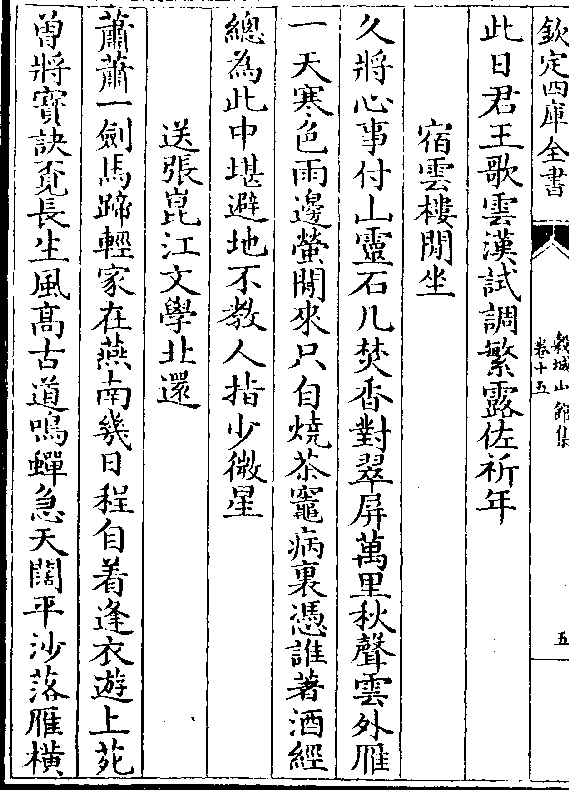 欽定四庫全書
穀城山館集
卷十五
五
此日君王歌雲漢試調繁露佐祈年
宿雲樓閒坐
久將心事付山靈石几焚香對翠屏萬里秋聲雲外雁
一天寒色雨邊螢閒來只自燒茶竈病裏憑誰著酒經
總為此中堪避地不教人指少微星
送張崑江文學北還
蕭蕭一劍馬蹄輕家在燕南幾日程自着逢衣遊上苑
曾將寳訣覔長生風髙古道鳴蟬急天闊平沙落雁横